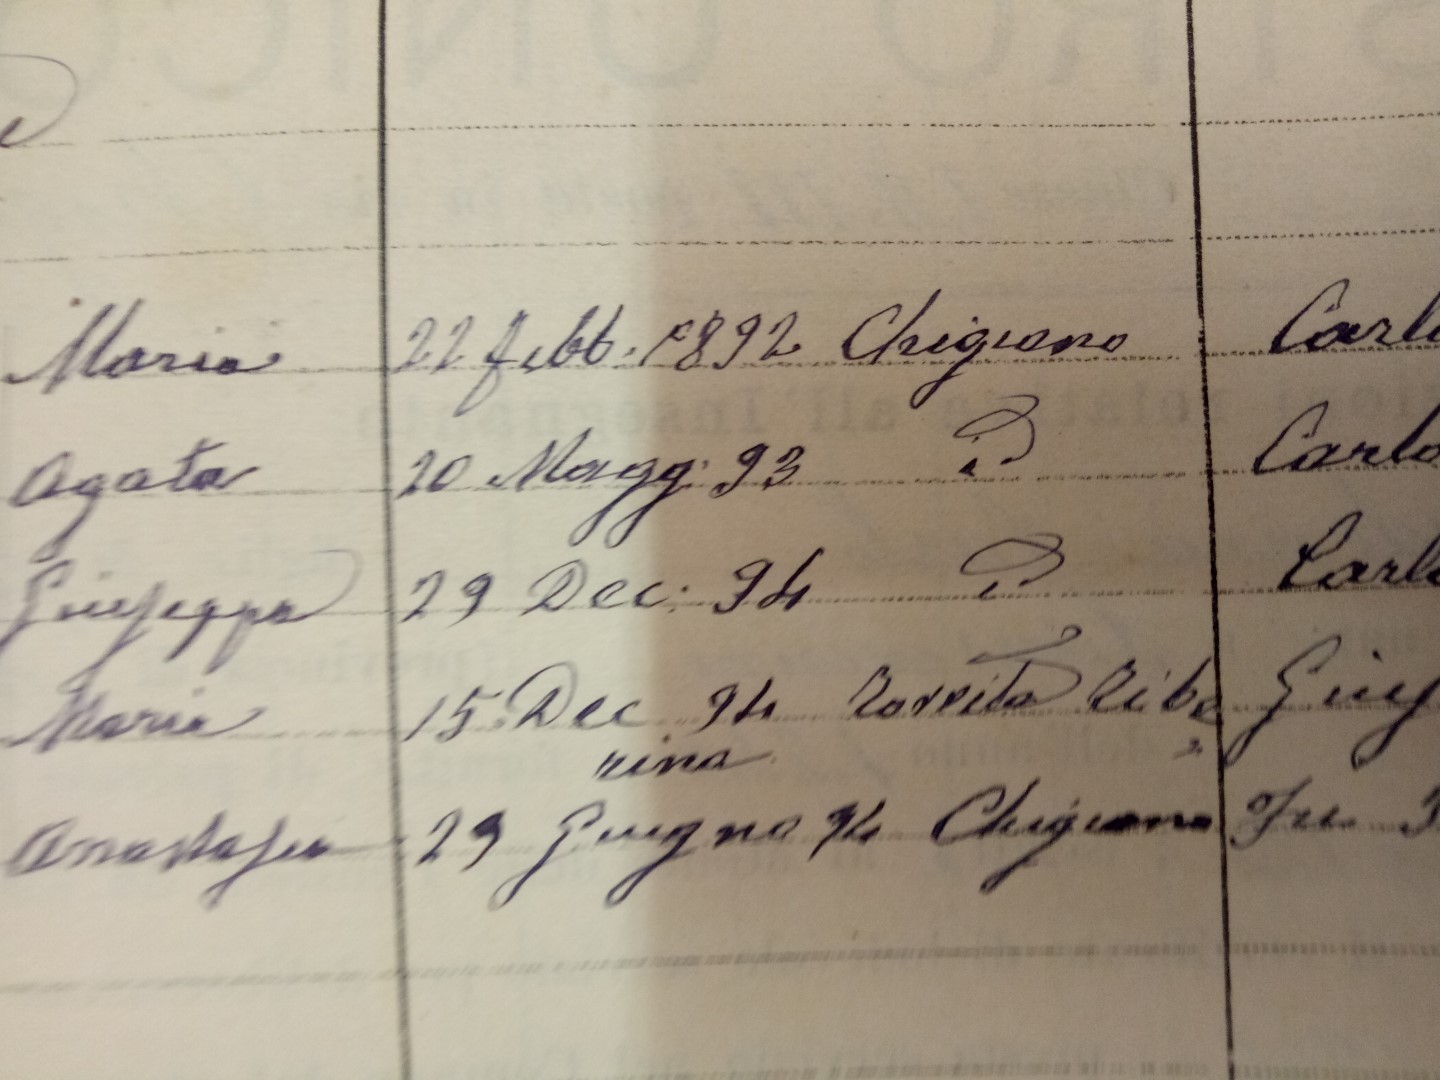 Maria 22 febb. 1892 Chigiano Carlo
Agata 20 Magg. 93 Carlo
Giuseppa 29 Dec. 94 Carlo
Maria 15 Dec 94 Torrita Tibe Giu
rina
Anastasia 29 Giugno 94 Chigiano Fu